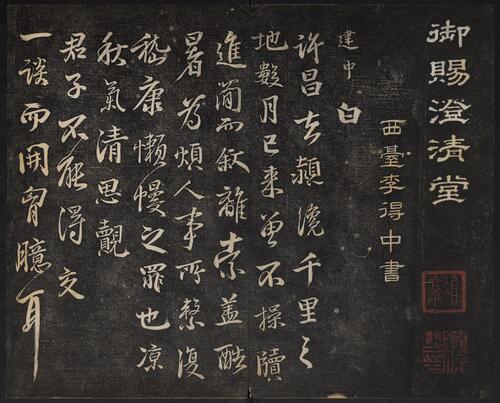 御賜澄清堂
西臺李得中書
建中
白
許昌去潁纔千里之
地數月已來並不操牘
進簡而敘離索蓋酷
暑為煩人事所繫復
嵇康懶慢之罪也凉
秋氣清思覿
君子不能得交
一談而開胷臆耳